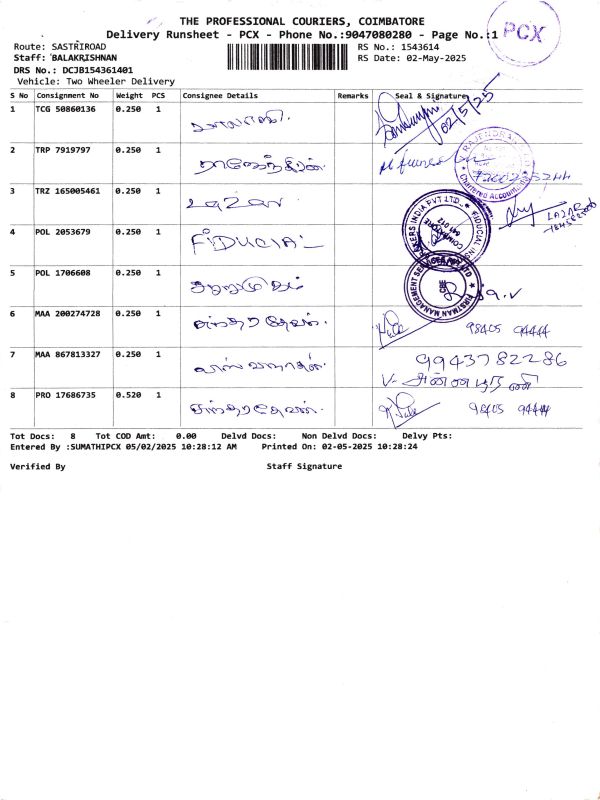 THE PROFESSIONAL COURIERS, COIMBATORE
Delivery Runsheet - PCX - Phone No.:9047080280 - Page No.:1
PCX
Route: SASTRIROAD
RS No.: 1543614
Staff: BALAKRISHNAN
RS Date: 02-May-2025
DRS No.: DCJB154361401
Vehicle: Two Wheeler Delivery
S No Consignment No Weight PCS Consignee Details Remarks Seal & Signature
1 TCG 50860136 0.250 1 02/5/25
2 TRP 7919797 0.250 1 ராஜேந்திரன்
RAJENDRAN
Chartered Accountant
3 TRZ 165005461 0.250 1 லாசர்
4 POL 2053679 0.250 1 FIDUCIAL
COIMBATORE
641 012
5 POL 1706608 0.250 1
FIRSTMAN MANAGEMENT SERVICES PVT LTD
6 MAA 200274728 0.250 1 98405 94444
7 MAA 867813327 0.250 1 9943782286
V. அன்னபூரணி
8 PRO 17686735 0.520 1 98405 94444
Tot Docs: 8 Tot COD Amt: 0.00 Delvd Docs: Non Delvd Docs: Delvy Pts:
Entered By :SUMATHIPCX 05/02/2025 10:28:12 AM Printed On: 02-05-2025 10:28:24
Verified By Staff Signature